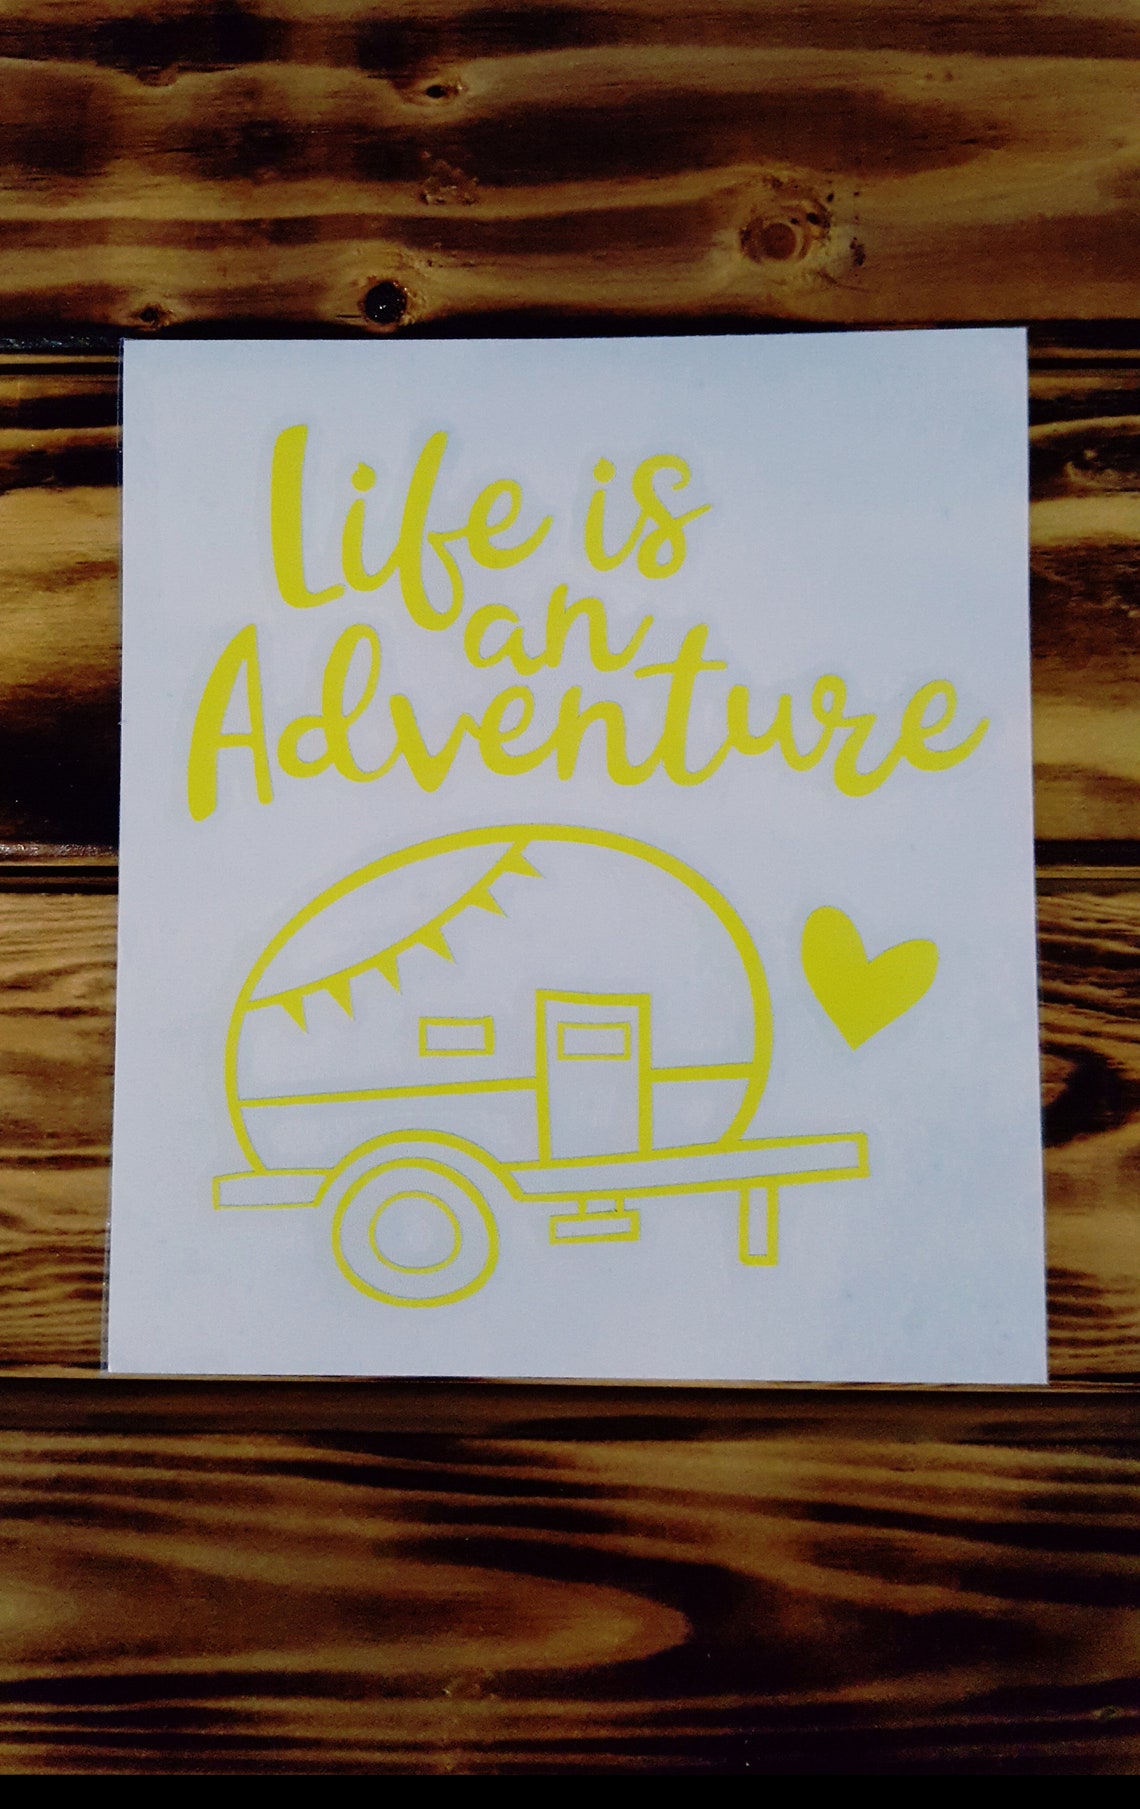 Life is
an
Adventure